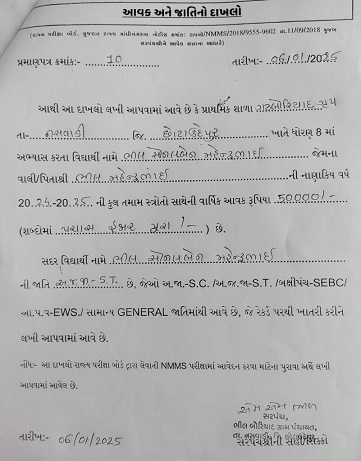 આવક અને જાતિનો દાખલો
(રાજ્ય પરીક્ષા બોર્ડ, ગુજરાત રાજ્ય ગાંધીનગરના નોટીસ ક્રમાંક: રાપબો/NMMS/2018/9555-9602 તા.11/09/2018 મુજબ
સરપંચશ્રીએ આપેલ સત્તાના આધારે)
પ્રમાણપત્ર ક્રમાંક:- 10 તારીખ:- 06/01/2025
આથી આ દાખલો લખી આપવામાં આવે છે કે પ્રાથમિક શાળા
તા- નસવાડી જિ. છોટાઉદેપુર ખાતે ધોરણ 8 માં
અભ્યાસ કરતા વિદ્યાર્થી નામે ભીલ સોનલબેન મહેન્દ્રભાઈ જેમના
વાલી/પિતાશ્રી ભીલ મહેન્દ્રભાઈ ની નાણાકિય વર્ષ
20.24-20.25 ની કુલ તમામ સ્ત્રોતો સાથેની વાર્ષિક આવક રૂપિયા 50000/-
(શબ્દોમાં પચાસ હજાર પુરા /- ) છે.
સદર વિદ્યાર્થી નામે ભીલ સોનલબેન મહેન્દ્રભાઈ
ની જાતિ અ.જ.જા-S.T. છે, જેઓ અ.જા-S.C. /અ.જ.જા-S.T. /બક્ષીપંચ-SEBC/
આ.પ.વ-EWS./ સામાન્ય GENERAL જાતિમાંથી આવે છે, જે રેકર્ડ પરથી ખાતરી કરીને
લખી આપવામાં આવે છે.
નોંધ:- આ દાખલો રાજ્ય પરીક્ષા બોર્ડ દ્વારા લેવાતી NMMS પરીક્ષામાં આવેદન કરવા માટેના પુરાવા અર્થે લખી
આપવામાં આવેલ છે.
સરપંચ,
ભીલ બોરિયાદ ગ્રામ પંચાયત,
તા. નસવાડી જિ. છોટાઉદેપુર
તારીખ:- 06/01/2025 સરપંચશ્રીની સહી/સિક્કો